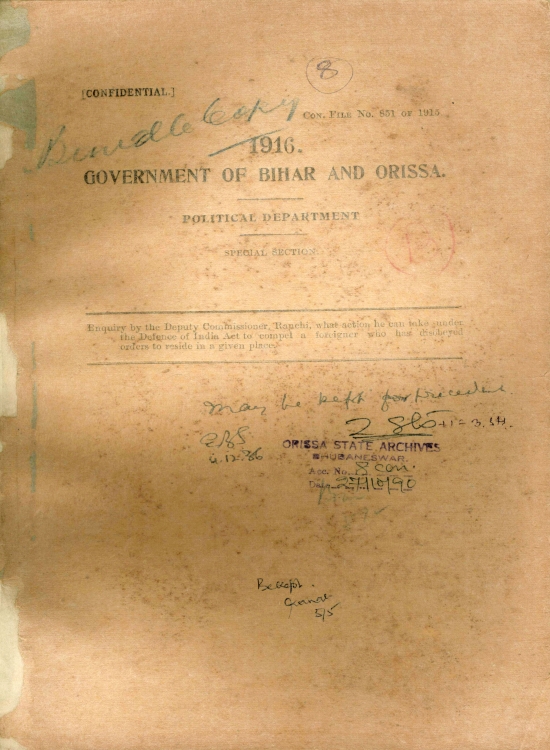 8
[CONFIDENTIAL.]
Copy
CON. FILE NO. 851 OF 1915
1916.
GOVERNMENT OF BIHAR AND ORISSA.
POLITICAL DEPARTMENT
SPECIAL SECTION.
Enquiry by the Deputy Commissioner, Ranchi, what action he can take under
the Defence of India Act to compel a foreigner who has disobeyed
orders to reside in a given place.
may be kept for precedent
ORISSA STATE ARCHIVES
BHUBANESWAR.
Acc. No. 8 con.
5/5